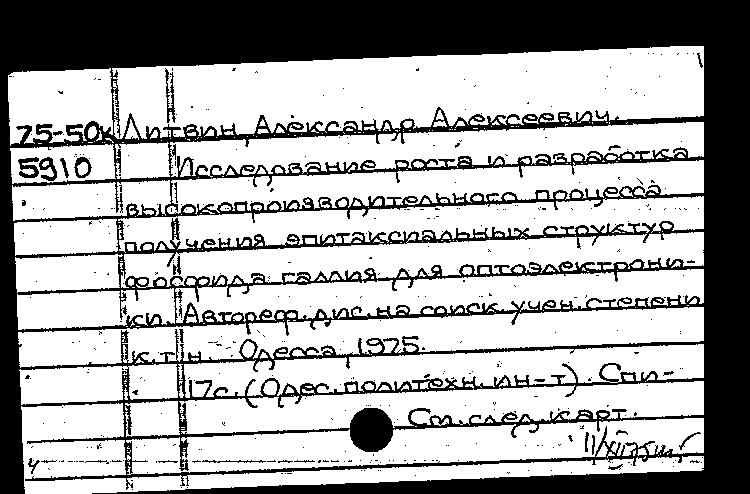 75-50к Литвин, Александр Алексеевич.
5910 Исследование роста и разработка
высокопроизводительного процесса
получения эпитаксиальных структур
фосфида галлия для оптоэлектрони-
ки. Автореф. дис. на соиск. учен. степени
к.т.н. Одесса, 1975.
17с. (Одес. политехн. ин-т). Спи-
См. след. карт.
11/XII75
ч